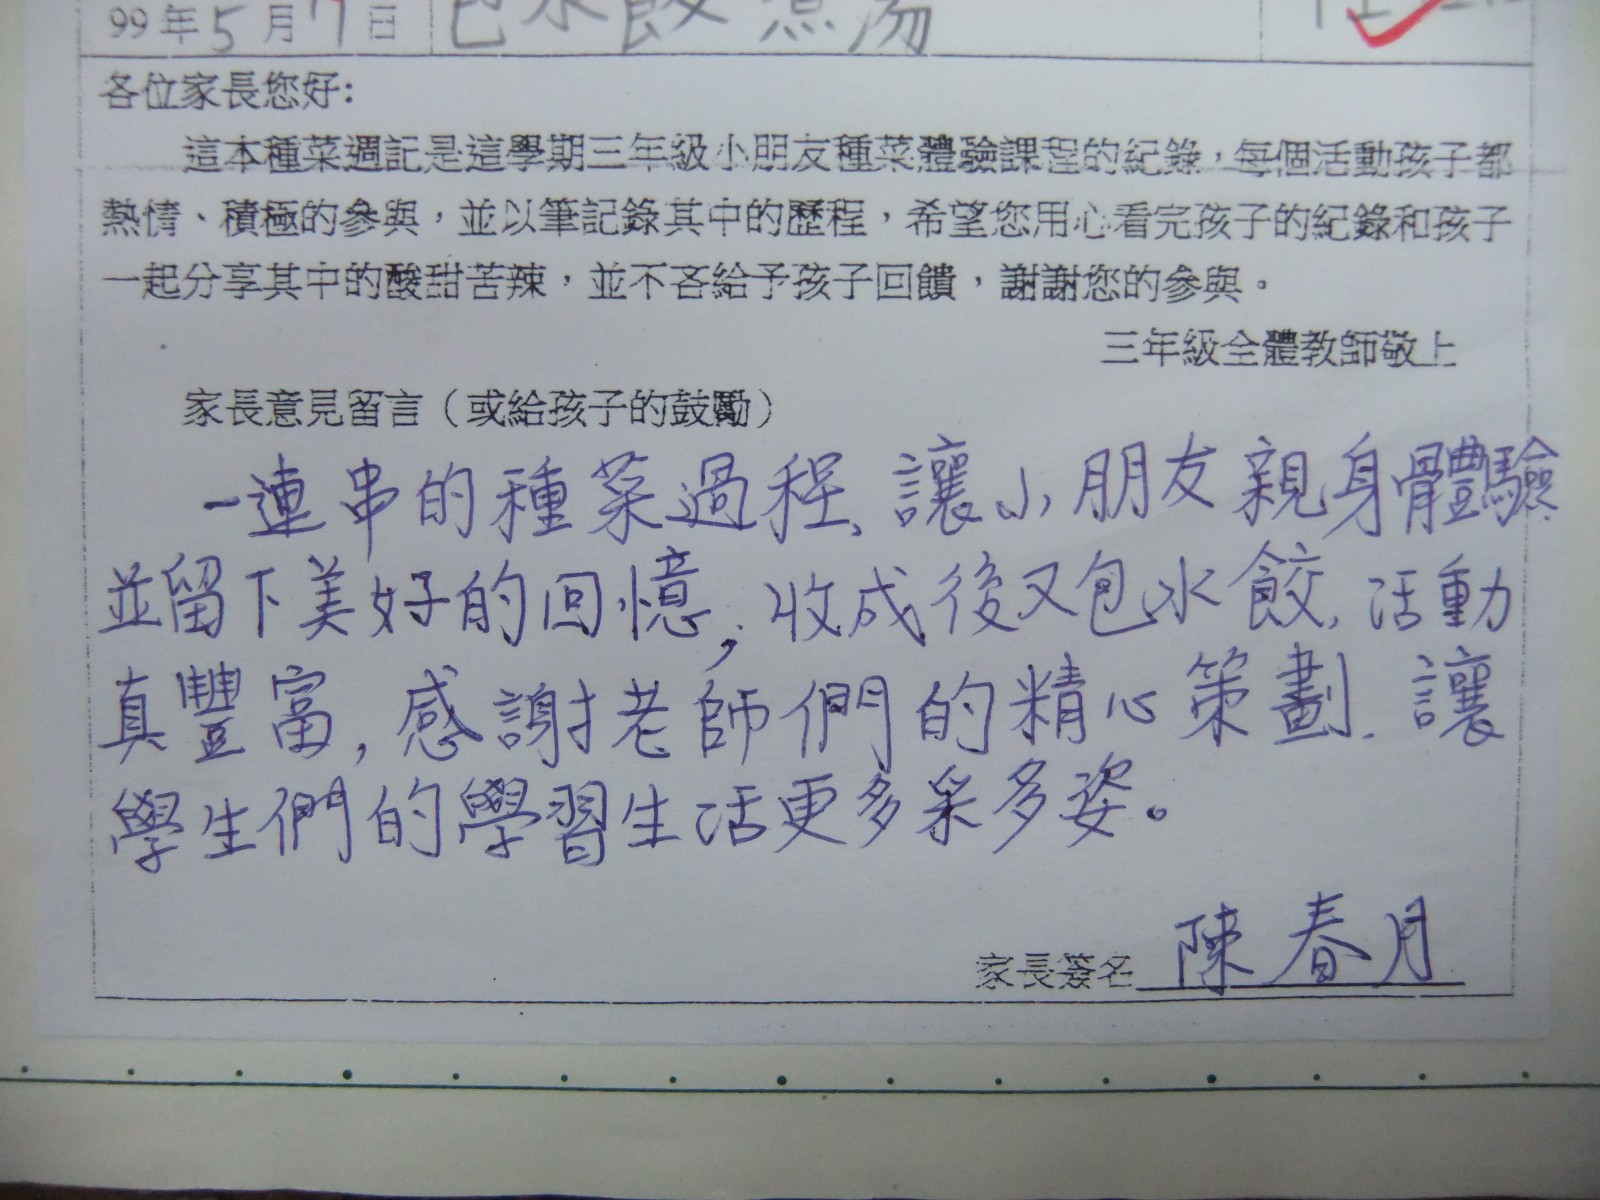 99年5月7日 包水餃煮湯
各位家長您好:
這本種菜週記是這學期三年級小朋友種菜體驗課程的紀錄,每個活動孩子都
熱情、積極的參與,並以筆記錄其中的歷程,希望您用心看完孩子的紀錄和孩子
一起分享其中的酸甜苦辣,並不吝給予孩子回饋,謝謝您的參與。
三年級全體教師敬上
家長意見留言(或給孩子的鼓勵)
一連串的種菜過程、讓小朋友親身體驗
並留下美好的回憶;收成後又包水餃,活動
真豐富,感謝老師們的精心策劃、讓
學生們的學習生活更多采多姿。
家長簽名 陳春月